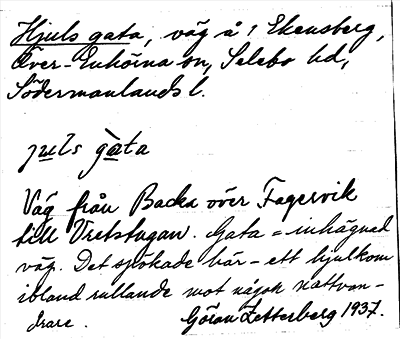 Hjuls gata, väg å 1 Ekensberg,
Över-Enhörna sn, Selebo hd,
Södermanlands l.
juls gata
Väg från Backa över Fagervik
till Vretstugan. Gata = inhägnad
väg. Det spökade här – ett hjul kom
ibland rullande mot någon nattvan-
drare. Göran Zetterberg 1937.